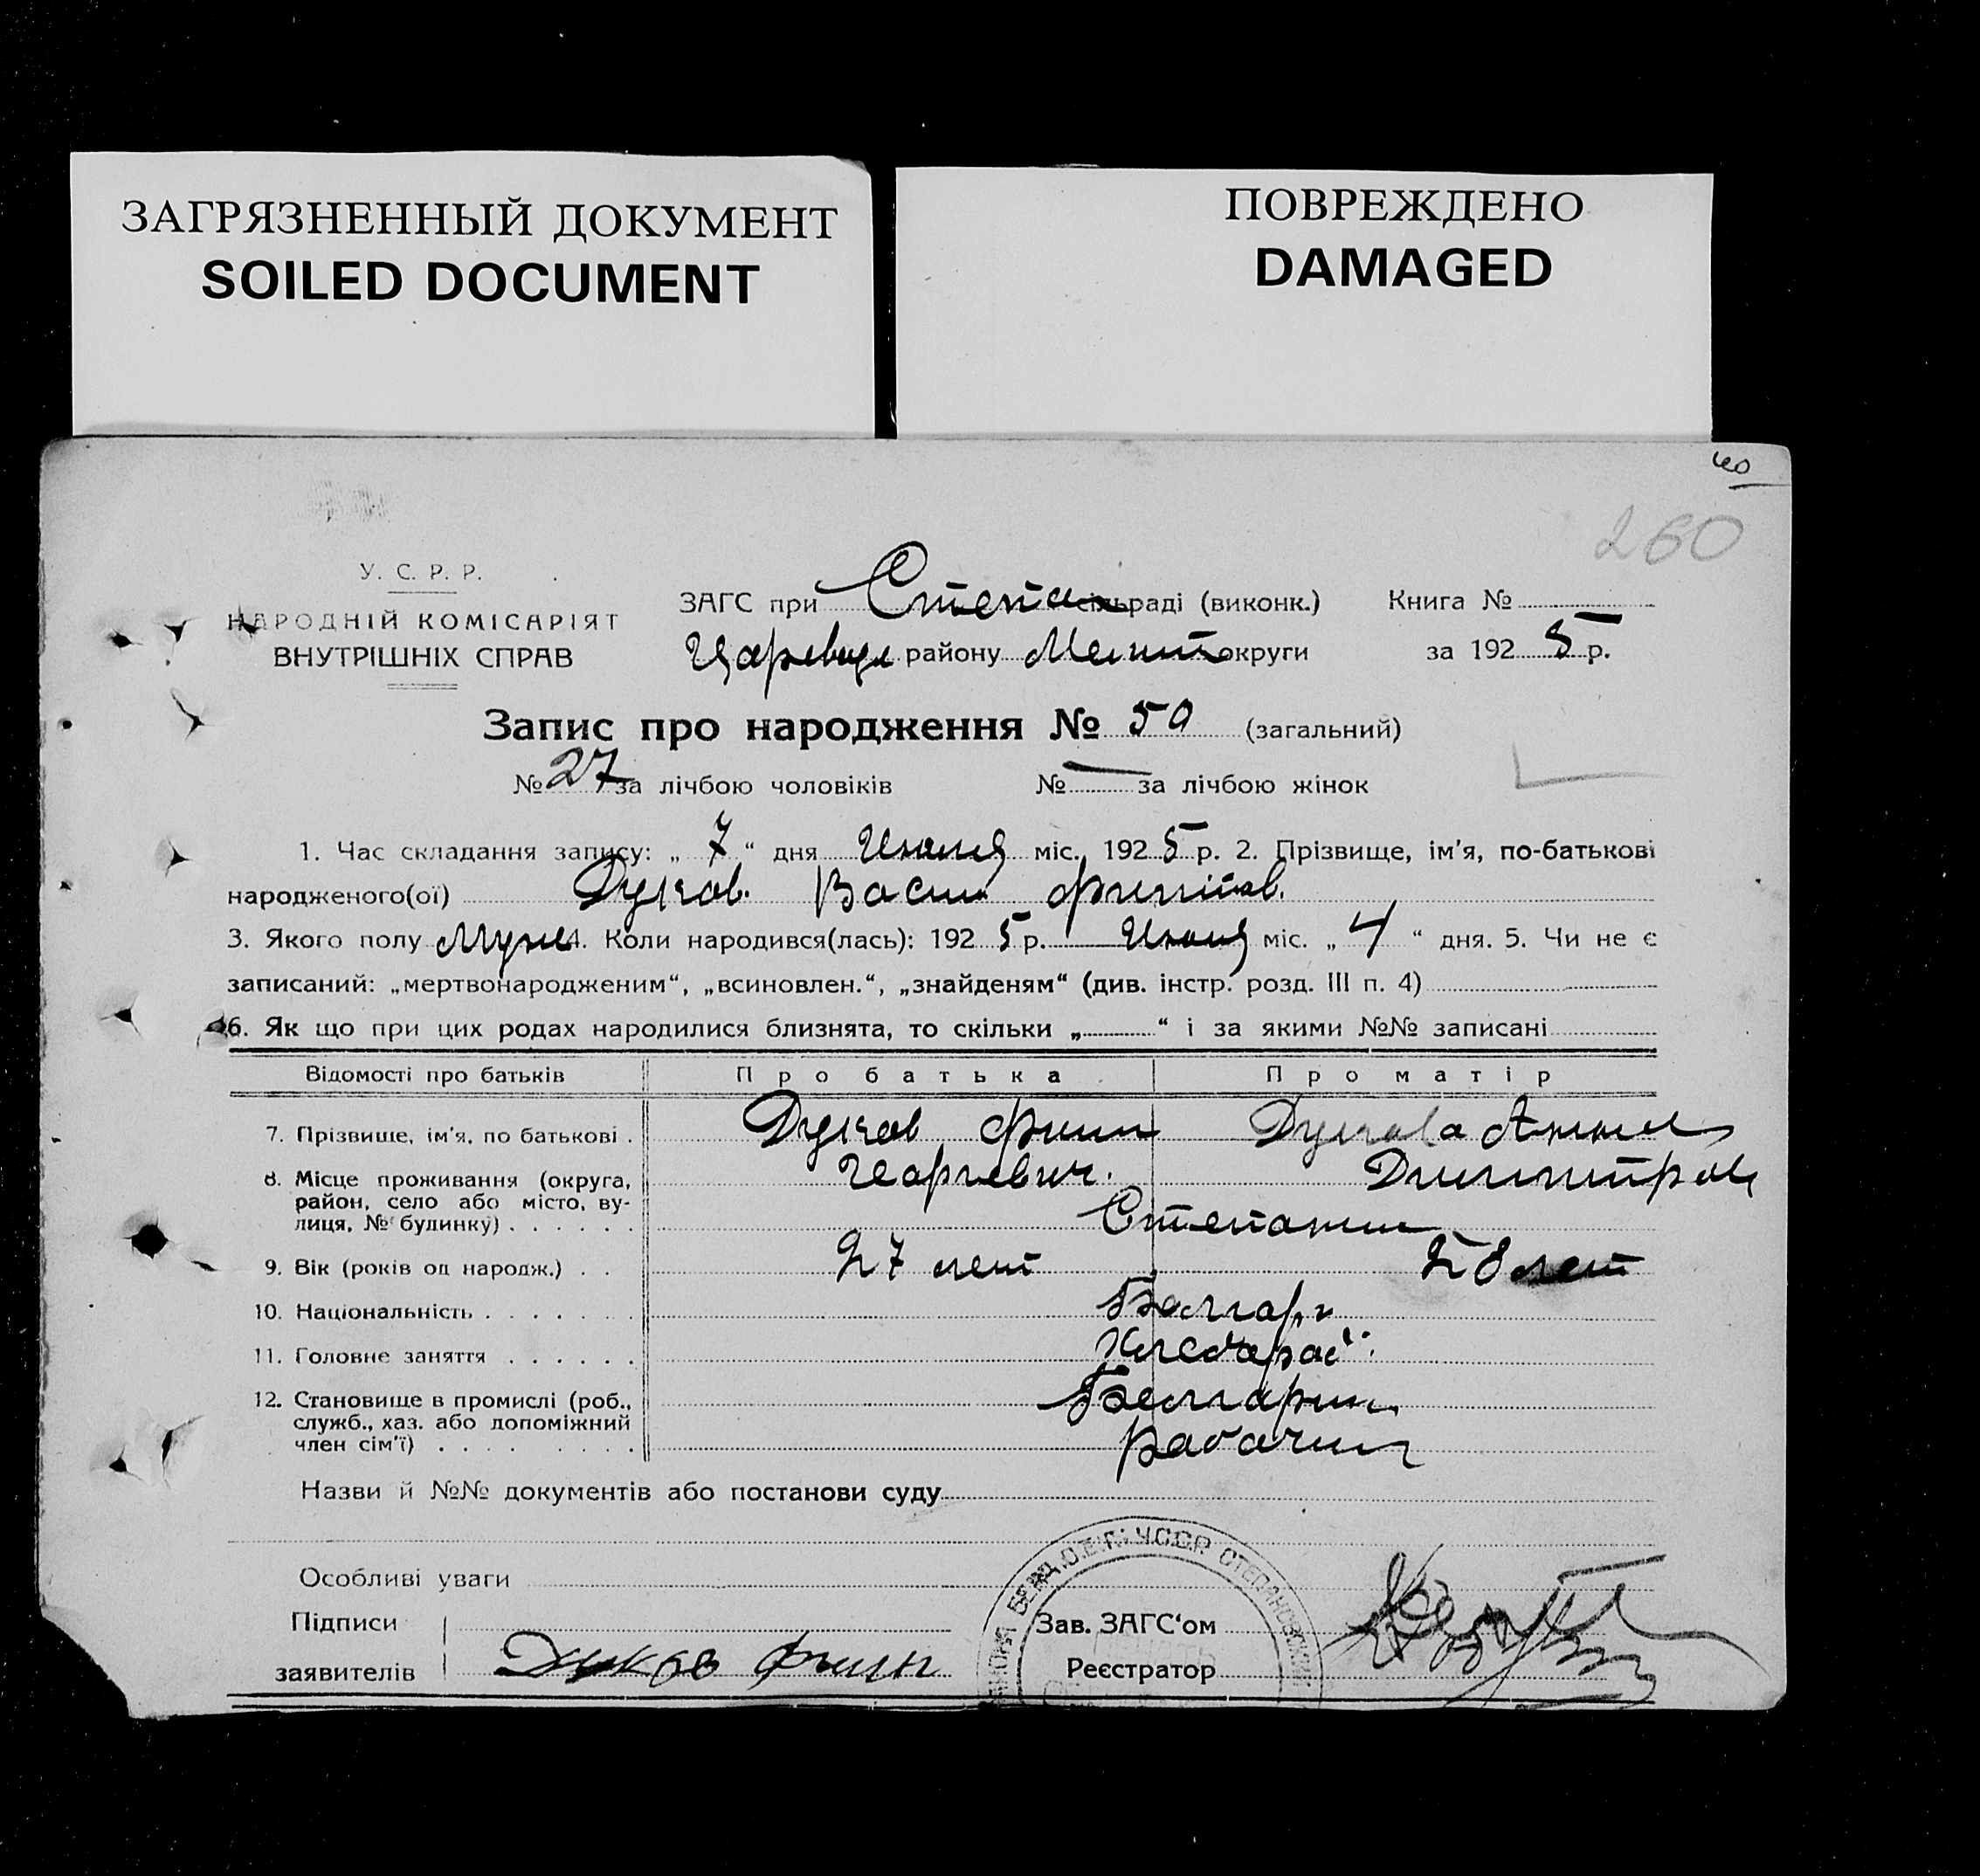 ЗАГРЯЗНЕННЫЙ ДОКУМЕНТ
SOILED DOCUMENT
ПОВРЕЖДЕНО
DAMAGED
260
У. С. Р. Р.
НАРОДНІЙ КОМІСАРІЯТ
ВНУТРІШНІХ СПРАВ
ЗАГС при Степан сільраді (виконк.) Книга №
району округи за 192 5 р.
Запис про народження № 50 (загальний)
№ 27 за лічбою чоловіків № — за лічбою жінок
1. Час складання запису: „ 7 “ дня Июня міс. 192 5 р. 2. Прізвище, ім'я, по-батькові
народженого(ої) Дуков. Васил Филипов.
3. Якого полу Муж 4. Коли народився(лась): 192 5 р. Июня міс. „ 4 “ дня. 5. Чи не є
записаний: „мертвонародженим“, „всиновлен.“, „знайденям“ (див. інстр. розд. III п. 4)
6. Як що при цих родах народилися близнята, то скільки „ “ і за якими №№ записані
Відомості про батьків Про батька Про матір
7. Прізвище, ім'я, по батькові . Дуков Филип Дукова Анна
Георгиевич. Димитров
8. Місце проживання (округа,
район, село або місто, ву-
лиця, № будинку) . . . . . . Степановка
9. Вік (років од народж.) . . 27 лет 28 лет
10. Національність . . . . . . . Болгары
11. Головне заняття . . . . . . Хлебороб.
12. Становище в промислі (роб.,
служб., хаз. або допоміжний
член сім'ї) . . . . . . . . .
Назви й №№ документів або постанови суду
Особливі уваги
Підписи
заявителів Дуков Филип
Зав. ЗАГС'ом
Реєстратор
БЕРД. О. Е. Г. У.С.С.Р. СТЕПАНОВСКИЙ